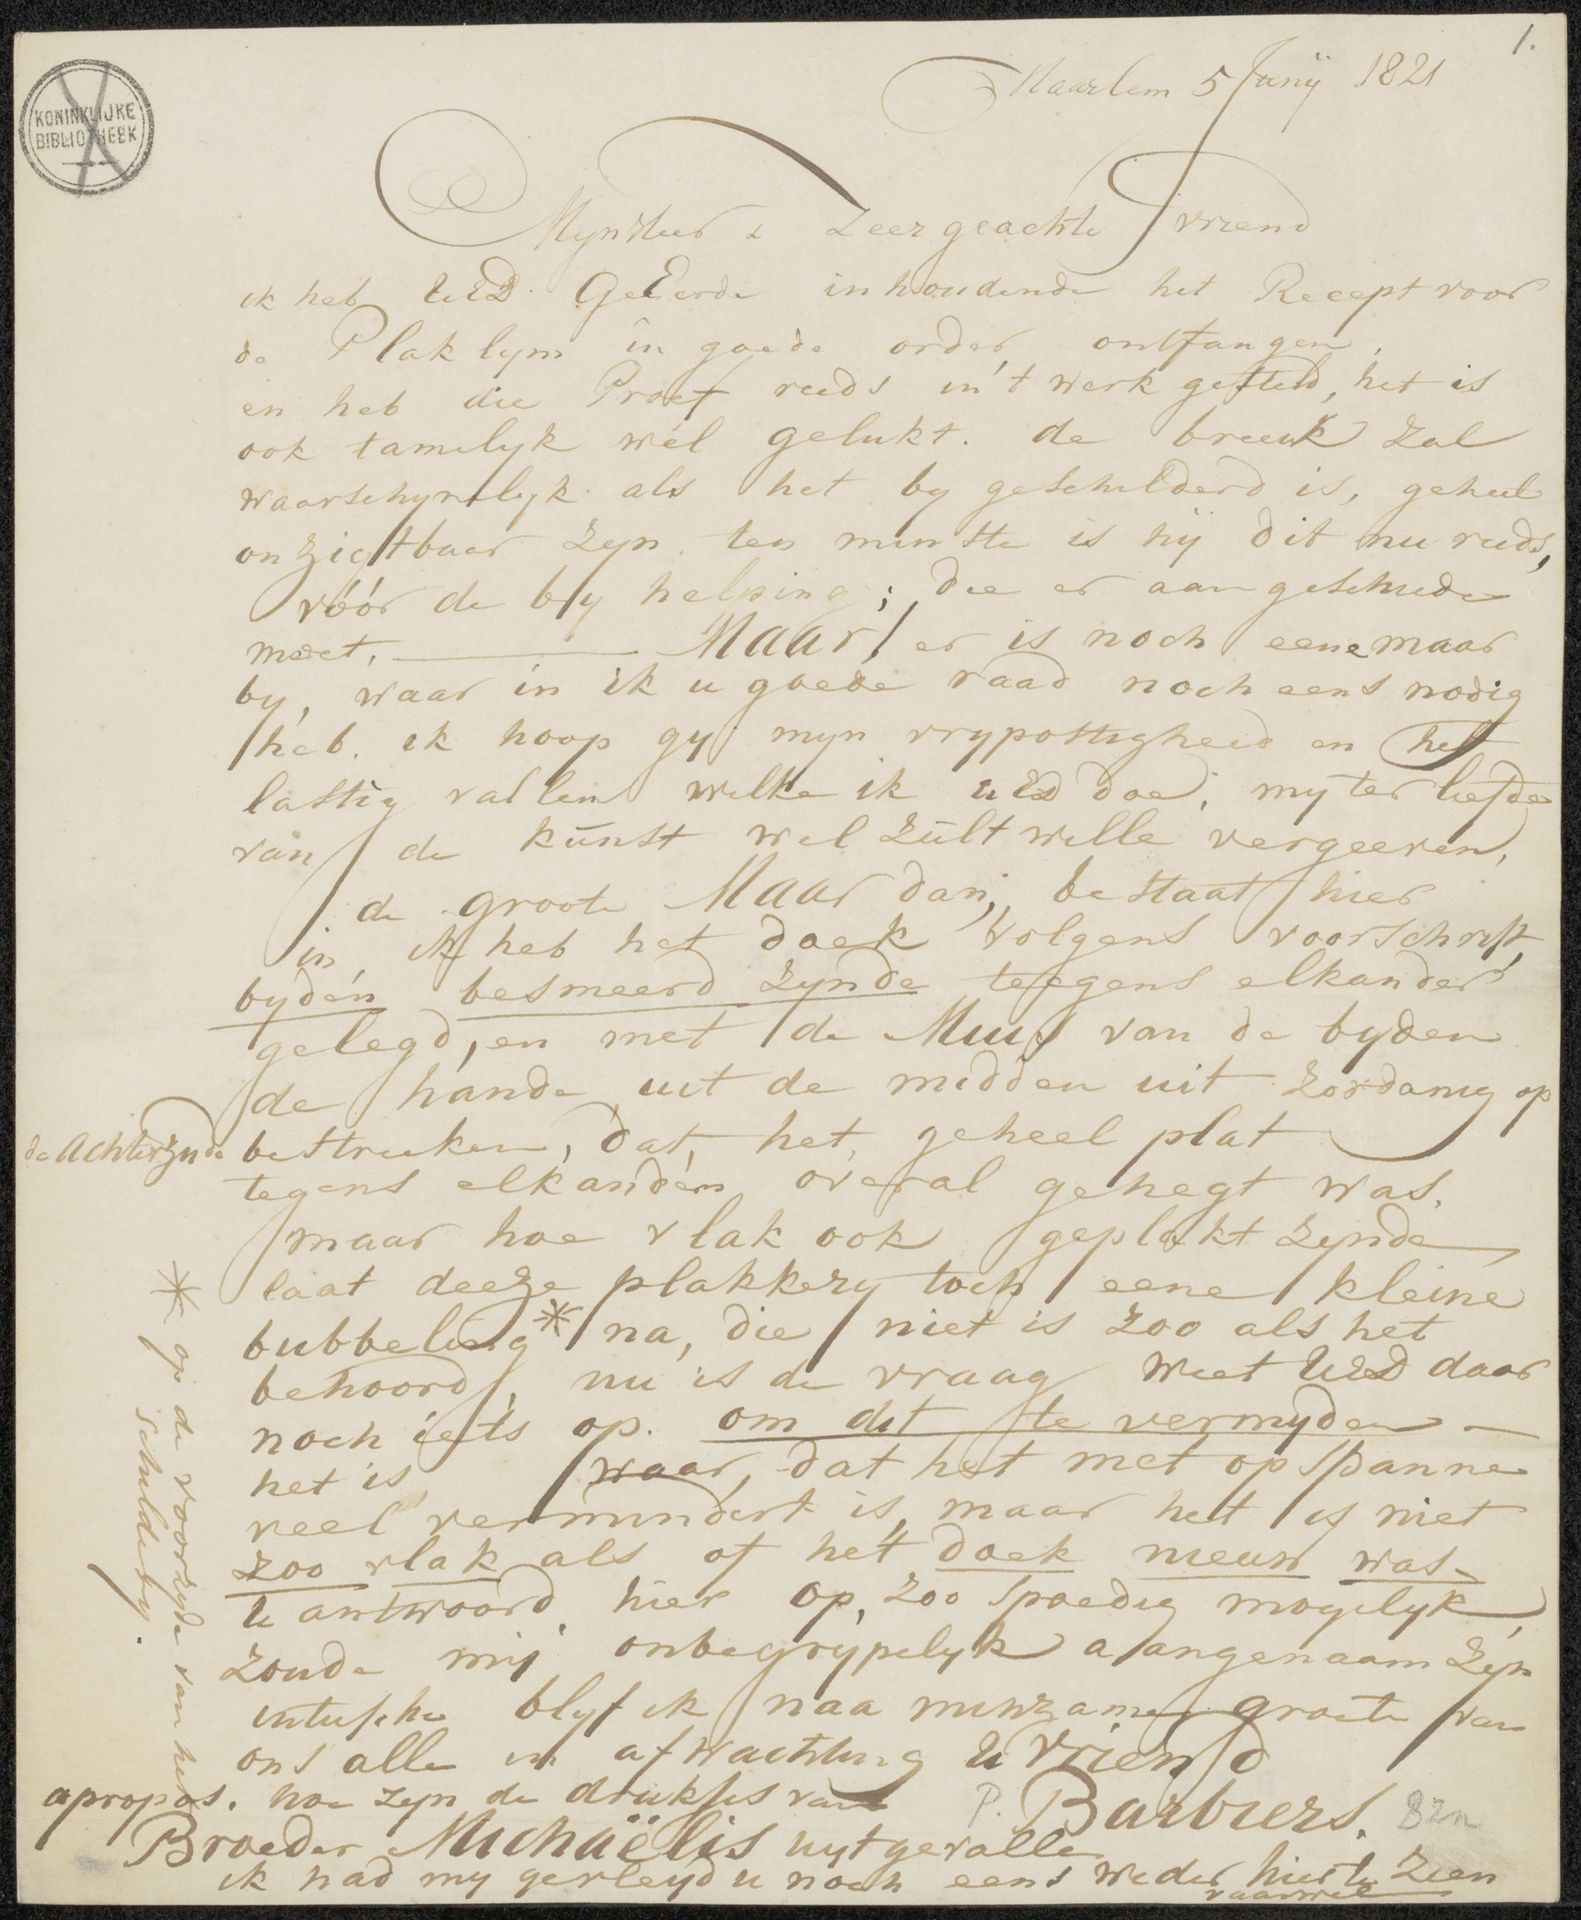 1.
KONINKLIJKE
BIBLIOTHEEK
Haarlem 5 Junij 1821
Mynheer & Zeergeachte Vriend
ik heb UED GeEerde inhoudende het Recept voor
de Plaklym in goede order ontfangen,
en heb die Proef reeds in't werk gesteld, het is
ook tamelyk wél gelukt. de breuk zal
waarschynelyk als het by geschilderd is, geheel
onzigtbaar zyn. ten minste is hij dit nu reeds,
vóór de by helping; die er aan geschiede
moet, Maar! er is noch eene maar
by, waar in ik u goede raad noch eens nodig
heb. ik hoop gy myn vrypostigheid en het
lastig vallen welke ik UED doe, my ter liefde
van de kunst wel zult wille vergeeven,
de groote Maar dan, bestaat hier
in, ik heb het doek volgens voorschrift,
byden besmeerd zynde teegens elkander
gelegd, en met de Muis van de byden
de hande uit de midden uit zordanig op
de Achterzyde bestreeken, dat het geheel plat
tegens elkanden overal gehegt was.
maar hoe vlak ook geplakt zynde
laat deeze plakkery toch eene kleine
bubbeling * na, die niet is zoo als het
behoord, nu is de vraag weet UED daar
noch iets op. om dit te vermyden
het is waar, dat het met op spanne
veel vermindert is, maar het is niet
zoo vlak als of het doek nieuw was.
U antwoord hier op, zoo spoedig mogelyk
zoude mij onbegrypelyk aangenaam zyn
intussche blyf ik naa minzame groete van
ons alle in afwachting U Vriend
P. Barbiers. Bzn
apropos. hoe zyn de drukjes van
Broeder Michaëlis uytgevalle
ik had my gevleyd u noch eens weder hier te zien
vaarwel
* op de voorzyde van het
schildery.